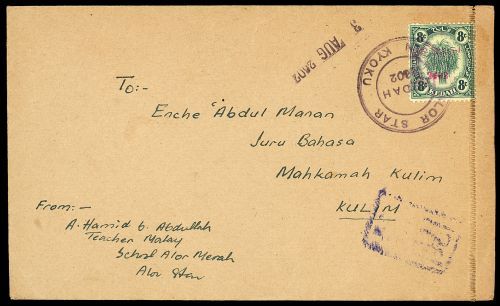 3 AUG 2602
8c 8c
KEDAH
ALOR STAR
KEDAH
2602
YUBIN KYOKU
To:-
Enche 'Abdul Manan
Juru Bahasa
Mahkamah Kulim
KULIM
From:-
A. Hamid b. Abdullah
Teacher Malay
School Alor Merah
Alor Star